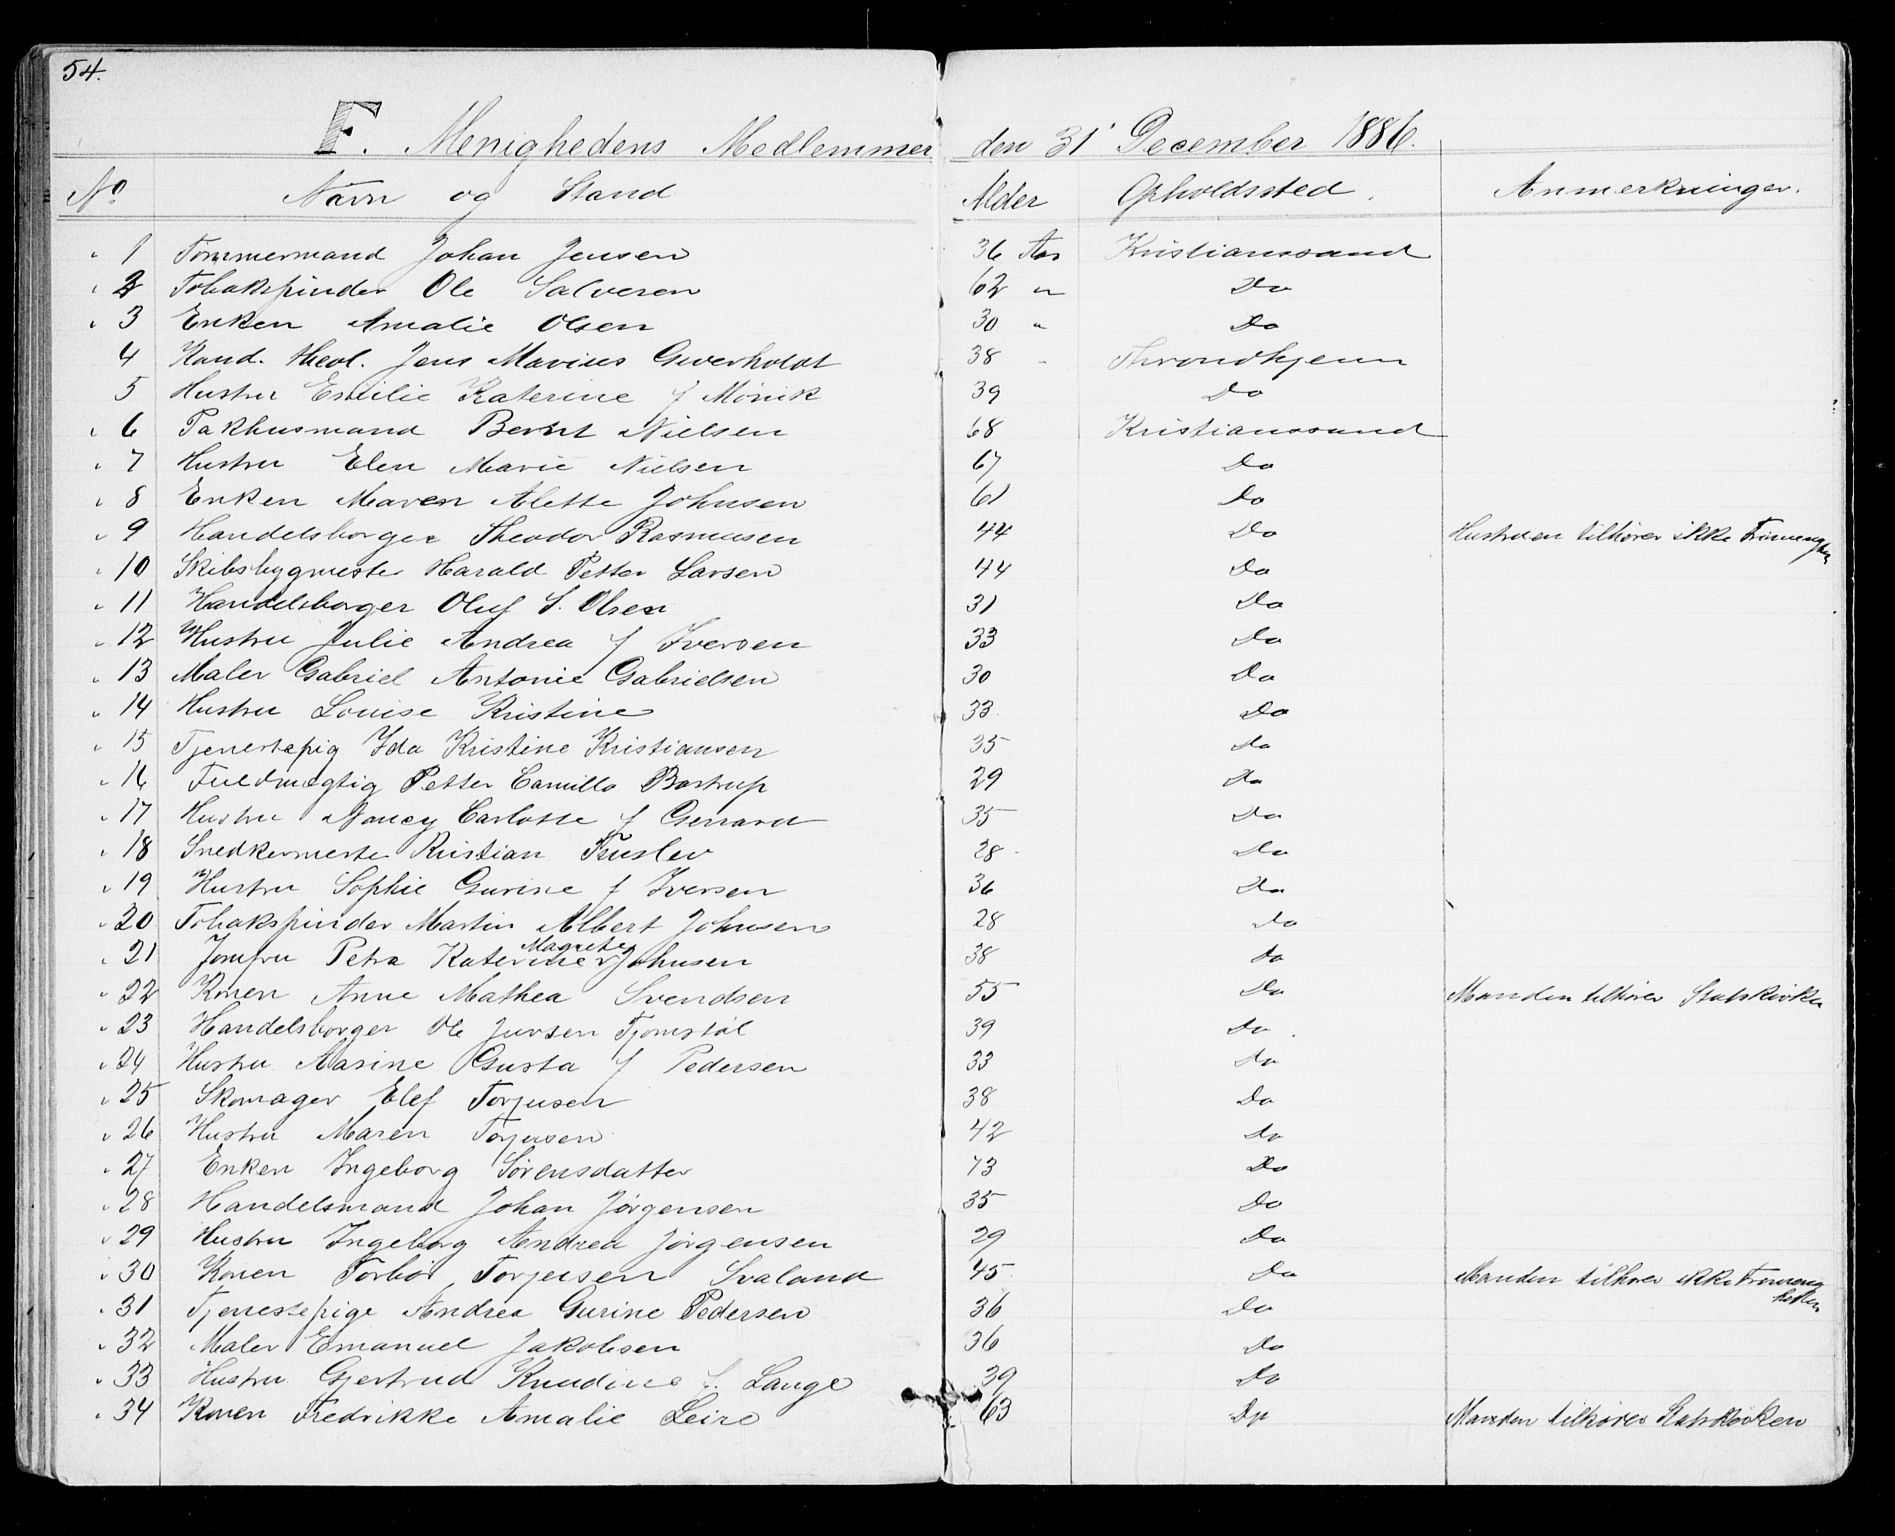 54.
F. Menighedens Medlemmer den 31' December 1886.
No Navn og Stand Alder Opholdssted. Anmerkninger.
" 1 Tømmermand Johan Jensen 36 Aar Kristianssand
" 2 Tobakspinder Ole Salvesen 62 " Do
" 3 Enken Amalie Olsen 30 " Do
4 Kand. theol. Jens Marius Giverholdt 38 " Throndhjem
5 Hustru Emilie Katerine f Mönik 39 Do
" 6 Pakhusmand Bernt Nielsen 68 Kristianssand
" 7 Hustru Elen Marie Nielsen 67 Do
" 8 Enken Maren Alette Johnsen 61 Do
" 9 Handelsborger Theodor Rasmusen 44 Do Hustruen tilhører ikke Frimenigh
" 10 Skibsbygmester Harald Petter Larsen 44 Do
" 11 Handelsborger Oluf S. Olsen 31 Do
" 12 Hustru Julie Andrea f Iversen 33 Do
" 13 Maler Gabriel Antonie Gabrielsen 30 Do
" 14 Hustru Louise Kristine 33 Do
" 15 Tjenestepig Ida Kristine Kristiansen 35 do
" 16 Fuldmægtig Petter Camillo Bostrup 29 Do
" 17 Hustru Nancy Carlotte f Gerrard 35 Do
" 18 Snedkermester Kristian Fuslev 28 Do
" 19 Hustru Sophie Gurine f Iversen 36 Do
" 20 Tobakspinder Martin Albert Johnsen 28 Do
" 21 Jomfru Petra Katerine Magrete Johnsen 38 Do
" 22 Konen Anne Mathea Svendsen 55 Do Manden tilhører Statskirken
" 23 Handelsborger Ole Jensen Tjomstøl 39 Do.
" 24 Hustru Aasine Gusta f Pedersen 33 Do
" 25 Skomager Elef Torjusen 38 Do
" 26 Hustru Maren Torjusen 42 Do
" 27 Enken Ingeborg Sørensdatter 73 Do
" 28 Handelsmand Johan Jørgensen 35 Do
" 29 Hustru Ingeborg Andrea Jørgensen 29 Do
" 30 Konen Torbør Torjusen Svaland 45 Do Manden tilhører ikke Frimenig
heden
" 31 Tjenestepige Andrea Gurine Pedersen 36 Do
" 32 Maler Emanuel Jakobsen 36 Do
" 33 Hustru Gjertrud Knudine f. Lange 39 Do
" 34 Konen Fredrikke Amalie Leire 63 Do Manden tilhører Statskirken